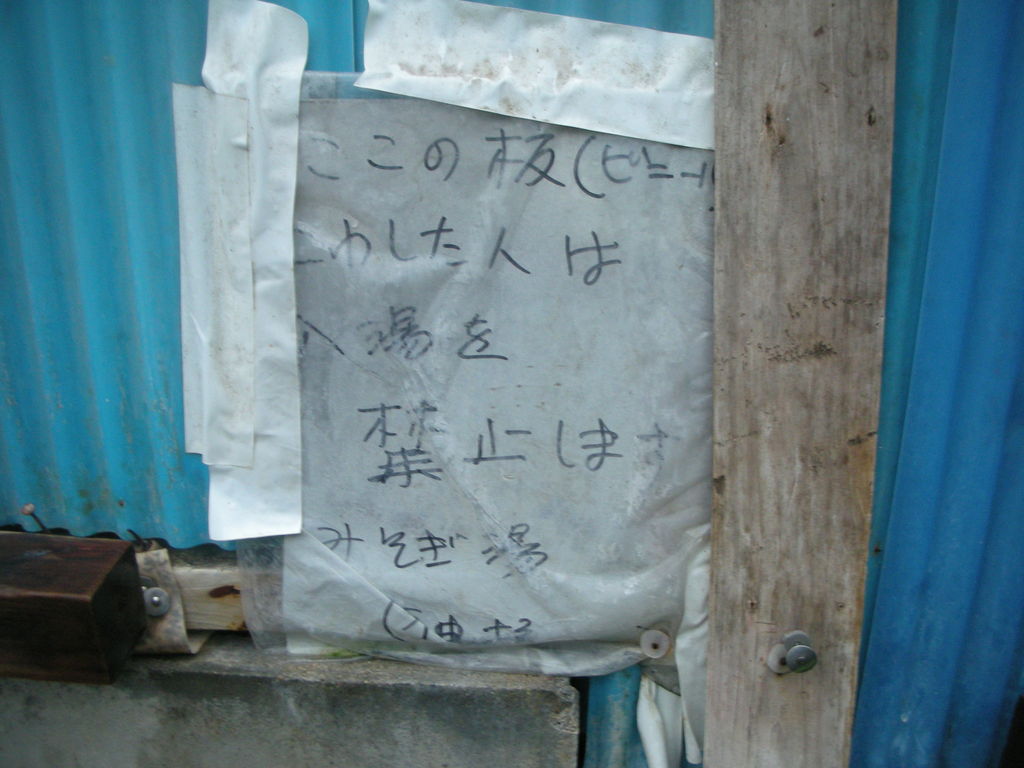 ここの板(ビニール
こわした人は
入湯を
禁止しま
みそぎ湯